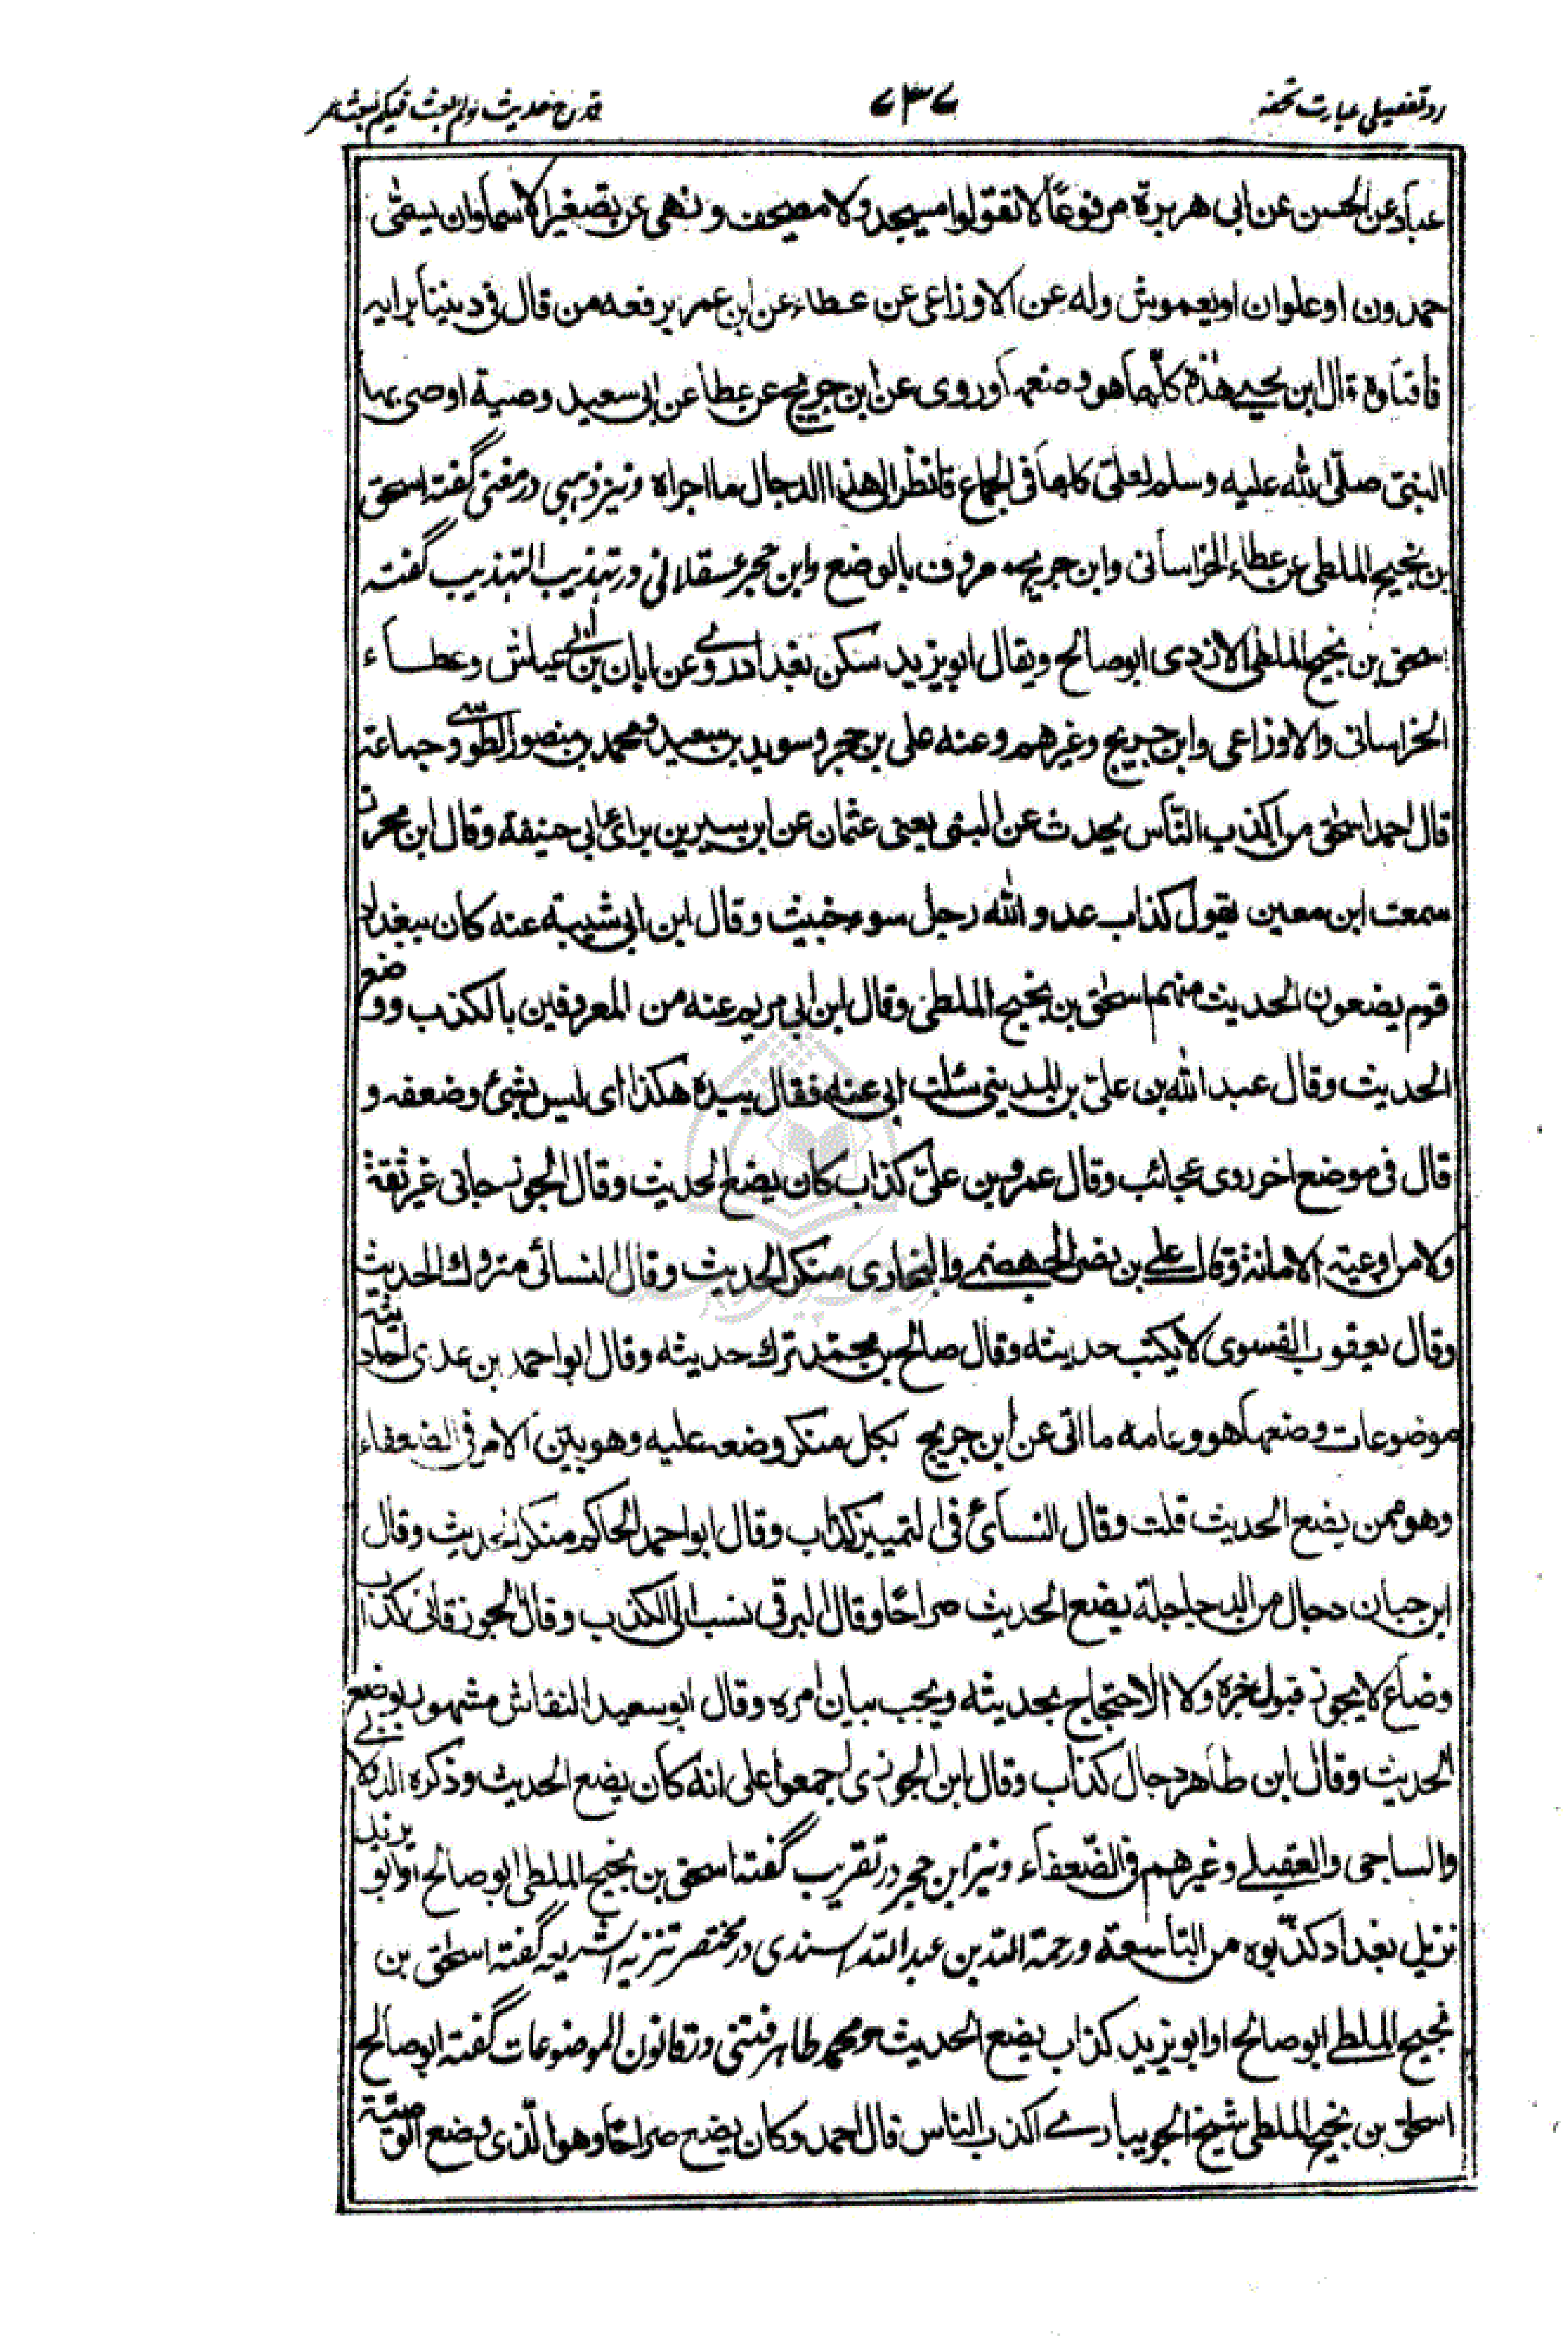 رد تفصیلی عبارت تحفه
۷۳۷
قدح حدیث ولم ابعث فیکم لبعث عمر
عباد عن الحسن عن ابی هریرة مرفوعاً لا تقولوا مسیجد ولا مصیحف ونهی عن تصغیر الاسماء وان یسمّی
حمدون او علوان او یعموش وله عن الاوزاعی عن عطاء عن ابن عمر یرفعه من قال فی دیننا برایه
فاقتلوه قال ابن یحیی هذه کلّها هو وضعها وروی عن ابن جریج عن عطاء عن ابی سعید وصیة اوصی بها
النبیّ صلّی الله علیه وسلم لعلیّ کلها فی الجماع فانظر الی هذا الدجال ما اجراه ونیز ذهبی در مغنی گفته اسحق
بن نجیح الملطی عن عطاء الخراسانی وابن جریج معروف بالوضع وابن حجر عسقلانی در تهذیب التهذیب گفته
اسحق بن نجیح الملطی الازدی ابو صالح ویقال ابو یزید سکن بغداد روی عن ابان بن ابی عیاش وعطاء
الخراسانی والاوزاعی وابن جریج وغیرهم وعنه علی بن حجر وسوید بن سعید ومحمد بن منصور الطوسی وجماعة
قال احمد اسحق من اکذب الناس یحدث عن البتی یعنی عثمان عن ابن سیرین برای ابی حنیفة وقال ابن محرز
سمعت ابن معین یقول کذاب عدو الله رجل سوء خبیث وقال ابن ابی شیبة عنه کان ببغداد
قوم یضعون الحدیث منهم اسحق بن نجیح الملطی وقال ابن ابی مریم عنه من المعروفین بالکذب ووضع
الحدیث وقال عبد الله بن علیّ بن المدینی سئلت ابی عنه فقال بیده هکذا ای لیس بشیٔ وضعفه و
قال فی موضع اخر روی عجائب وقال عمرو بن علیّ کذاب کان یضع الحدیث وقال الجوزجانی غیر ثقة
ولا من اوعیة الامانة وقال علی بن نصر الجهضمی والبخاری منکر الحدیث وقال النسائی متروك الحدیث
وقال یعقوب الفسوی لا یکتب حدیثه وقال صالح بن محمد ترك حدیثه وقال ابو احمد بن عدی احادیثه
موضوعات وضعها هو وعامه ما اتی عن ابن جریج بکل منکر وضعه علیه وهو بیّن الامر فی الضعفاء
وهو ممن یضع الحدیث قلت وقال النسائی فی التمییز کذاب وقال ابو احمد الحاکم منکر الحدیث وقال
ابن حبان دجال من الدجاجلة یضع الحدیث صراحًا وقال البرقی نسب الی الکذب وقال الجوزقانی کذاب
وضاع لا یجوز قبول خبره ولا الاحتجاج بحدیثه ویجب بیان امره وقال ابو سعید النقاش مشهور بوضع
الحدیث وقال ابن طاهر دجال کذاب وقال ابن الجوزی اجمعوا علی انه کان یضع الحدیث وذکره الدولابی
والساجی والعقیلی وغیرهم فی الضّعفاء ونیز ابن حجر در تقریب گفته اسحق بن نجیح الملطی ابو صالح او ابو یزید
نزیل بغداد کذّبوه من التاسعة ورحمة الله بن عبد الله السندی در مختصر تنزیه الشریعه گفته اسحق بن
نجیح الملطی ابو صالح او ابو یزید کذاب یضع الحدیث ومحمد طاهر فتنی در قانون الموضوعات گفته ابو صالح
اسحق بن نجیح الملطی شیخ الجویباری اکذب الناس قال احمد وکان یضع صراحًا وهو الّذی وضع الوصیّة